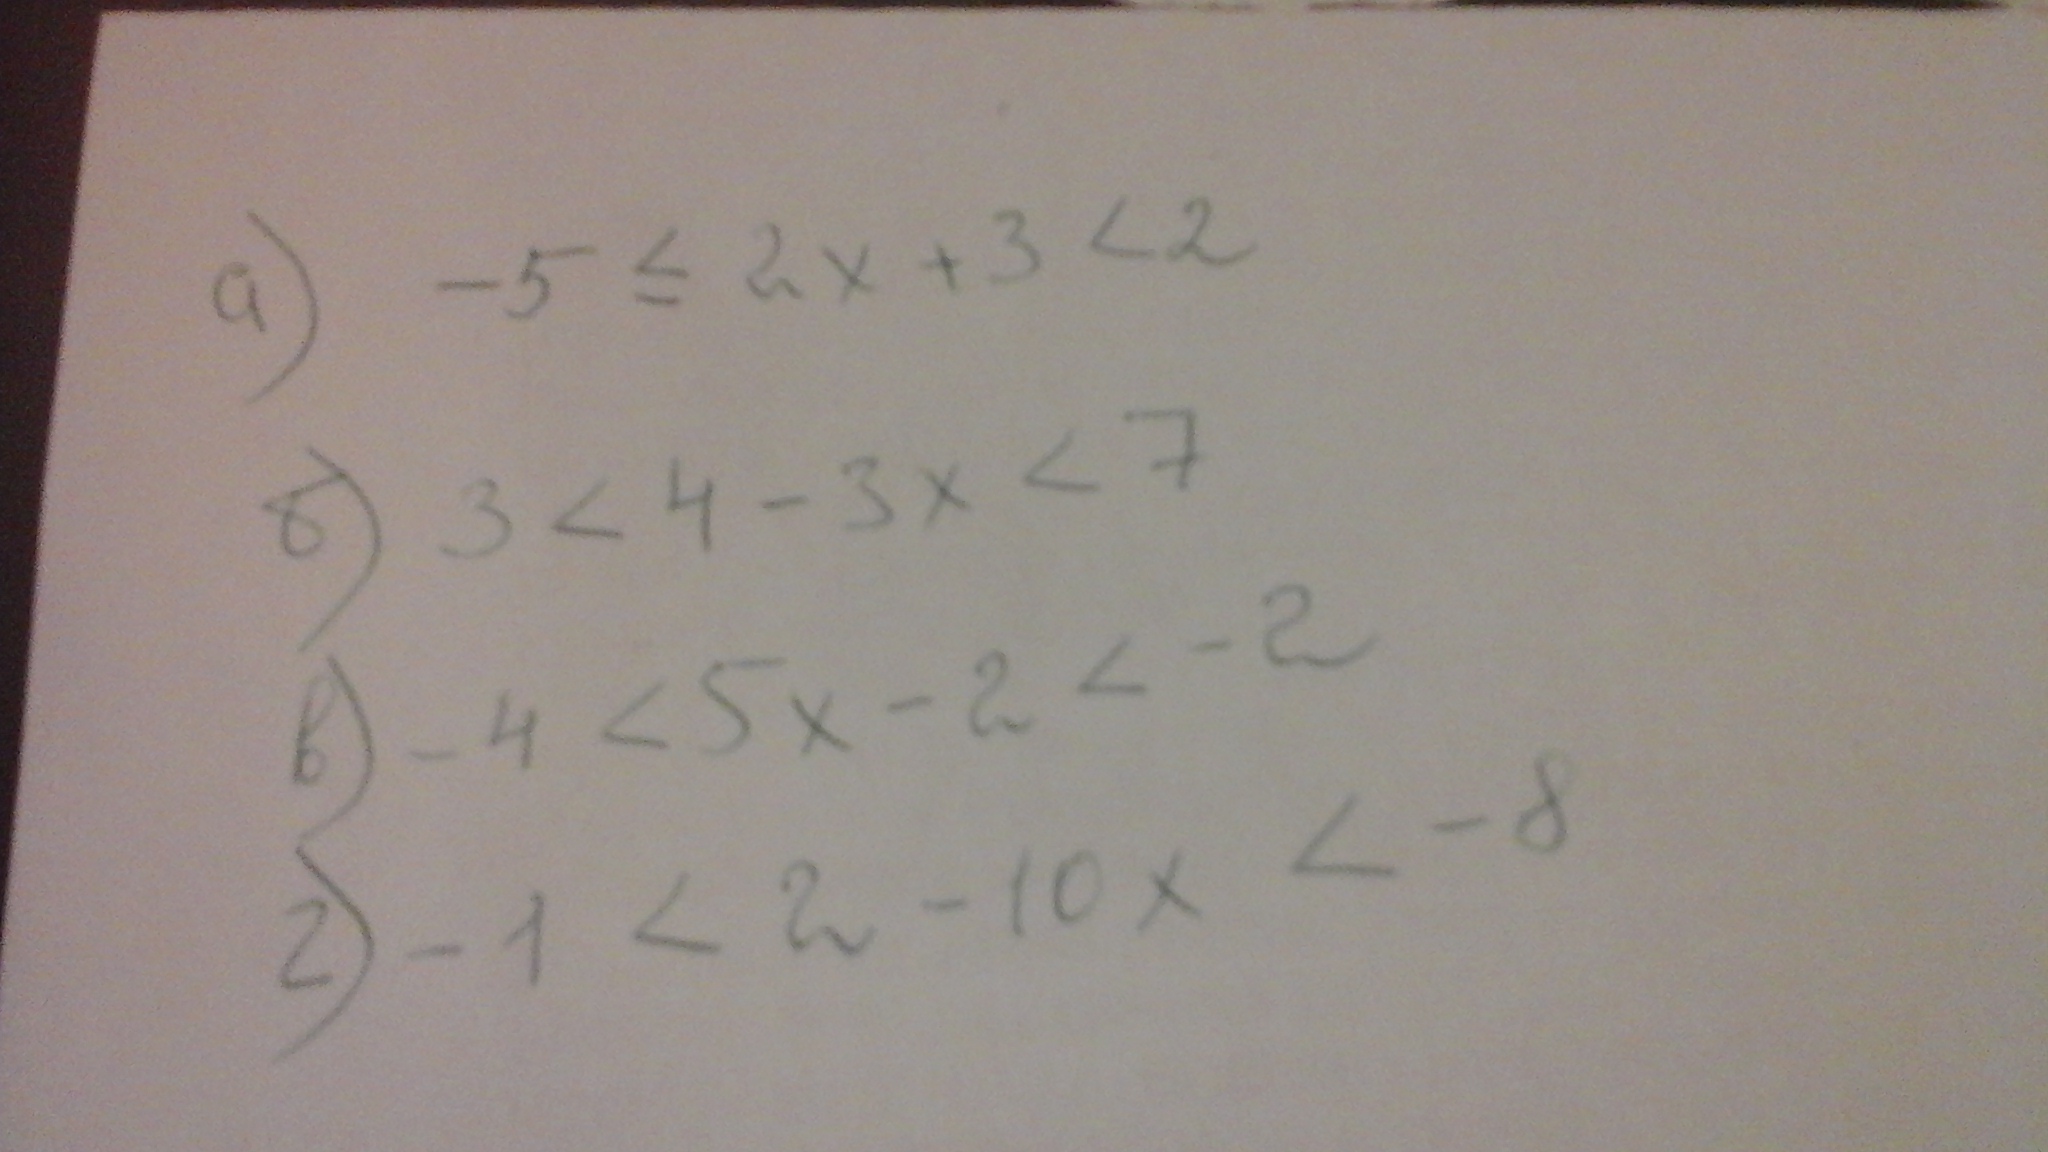 а) -5 ≤ 2x + 3 < 2
б) 3 < 4 - 3x < 7
в) -4 < 5x - 2 < -2
г) -1 < 2 - 10x < -8